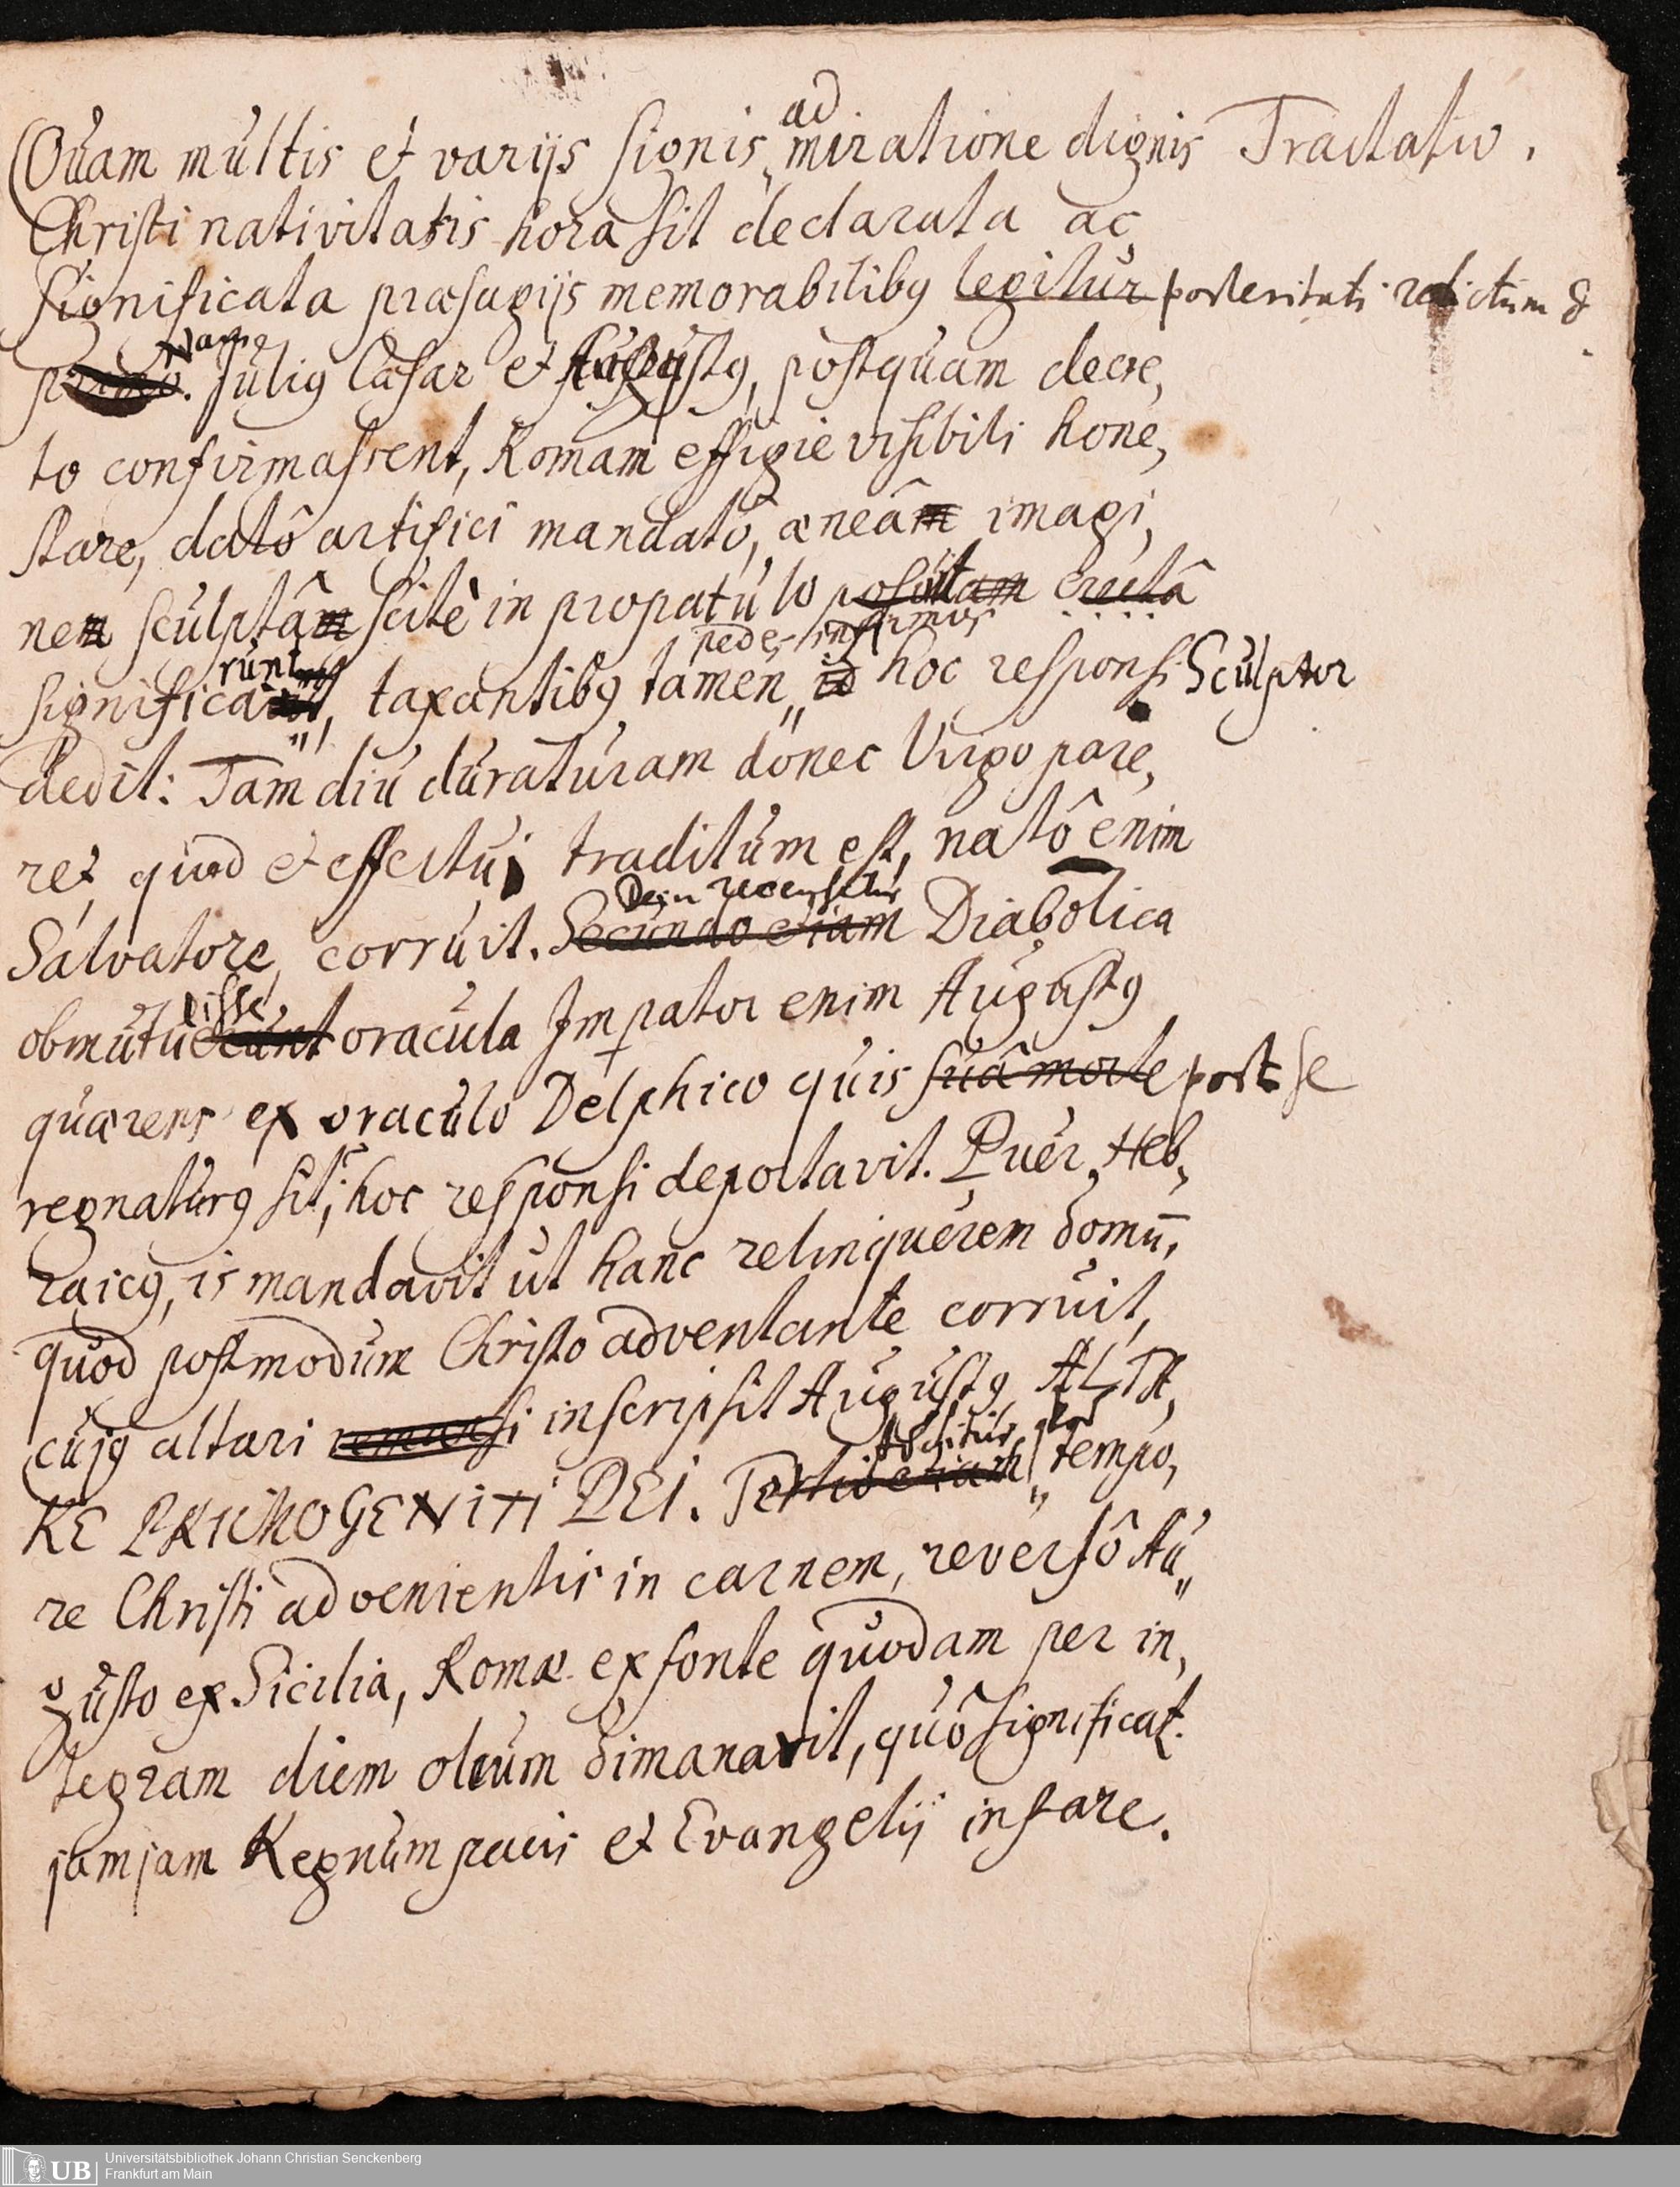 Quam multis et varijs signis admiratione dignis Tractatio.
Christi nativitatis hora sit declarata ac
significata præsagijs memorabilibꝰ legitur posteritati relictum &
primò. Nam Juliꝰ Cæsar et Augustꝰ, postquam decre,
to confirmassent, Romam effigie visibili hone,
stare, datô artifici mandatô, æneâm imagi,
nem sculptâm scitè in propatulo positam erectâ
significarunt, taxantibꝰ tamen pedes infirmos id hoc responsi Sculptor
dedit: Tam diu duraturam donec Virgo pare,
ret, quod et effectui traditum est, natô enim
Salvatore, corruit. Secundo etiam Dein recensetur Diabolica
obmutuisse oracula Impator enim Augustꝰ
quærens ex oraculo Delphico quis suâ morte post se
regnaturꝰ sit; hoc responsi deportavit. Puer Heb,
raicꝰ, is mandavit ut hanc relinquerem domū,
quod postmodum Christo adventante corruit,
cujꝰ altari inscripsit Augustꝰ ALTA,
RE PRIMOGENITI DEI. Tertio etiam Additur, quod tempo,
re Christi advenientis in carnem, reversô Au,,
gusto ex Sicilia, Romæ ex fonte quodam per in,
tegram diem oleum dimanavit, quô significat.
jamjam Regnum pacis et Evangelij instare.
Universitätsbibliothek Johann Christian Senckenberg
Frankfurt am Main
UB